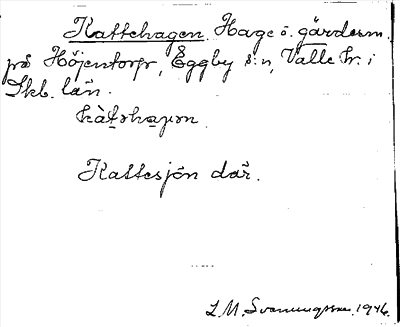 Kattehagen. Hage o. gärdesn.
på Höjentorp, Eggby s:n, Valle hr. i
Skb. län.
Kattesjön där.
L.M. Svanungsson. 1946.